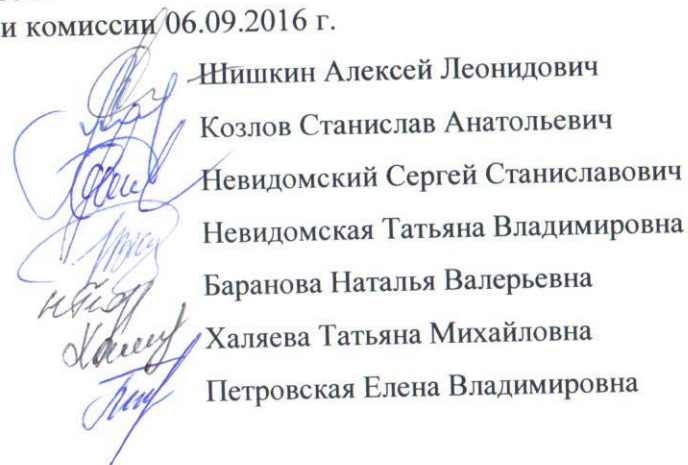 и комиссии 06.09.2016 г.
Шишкин Алексей Леонидович
Козлов Станислав Анатольевич
Невидомский Сергей Станиславович
Невидомская Татьяна Владимировна
Баранова Наталья Валерьевна
Халяева Татьяна Михайловна
Петровская Елена Владимировна